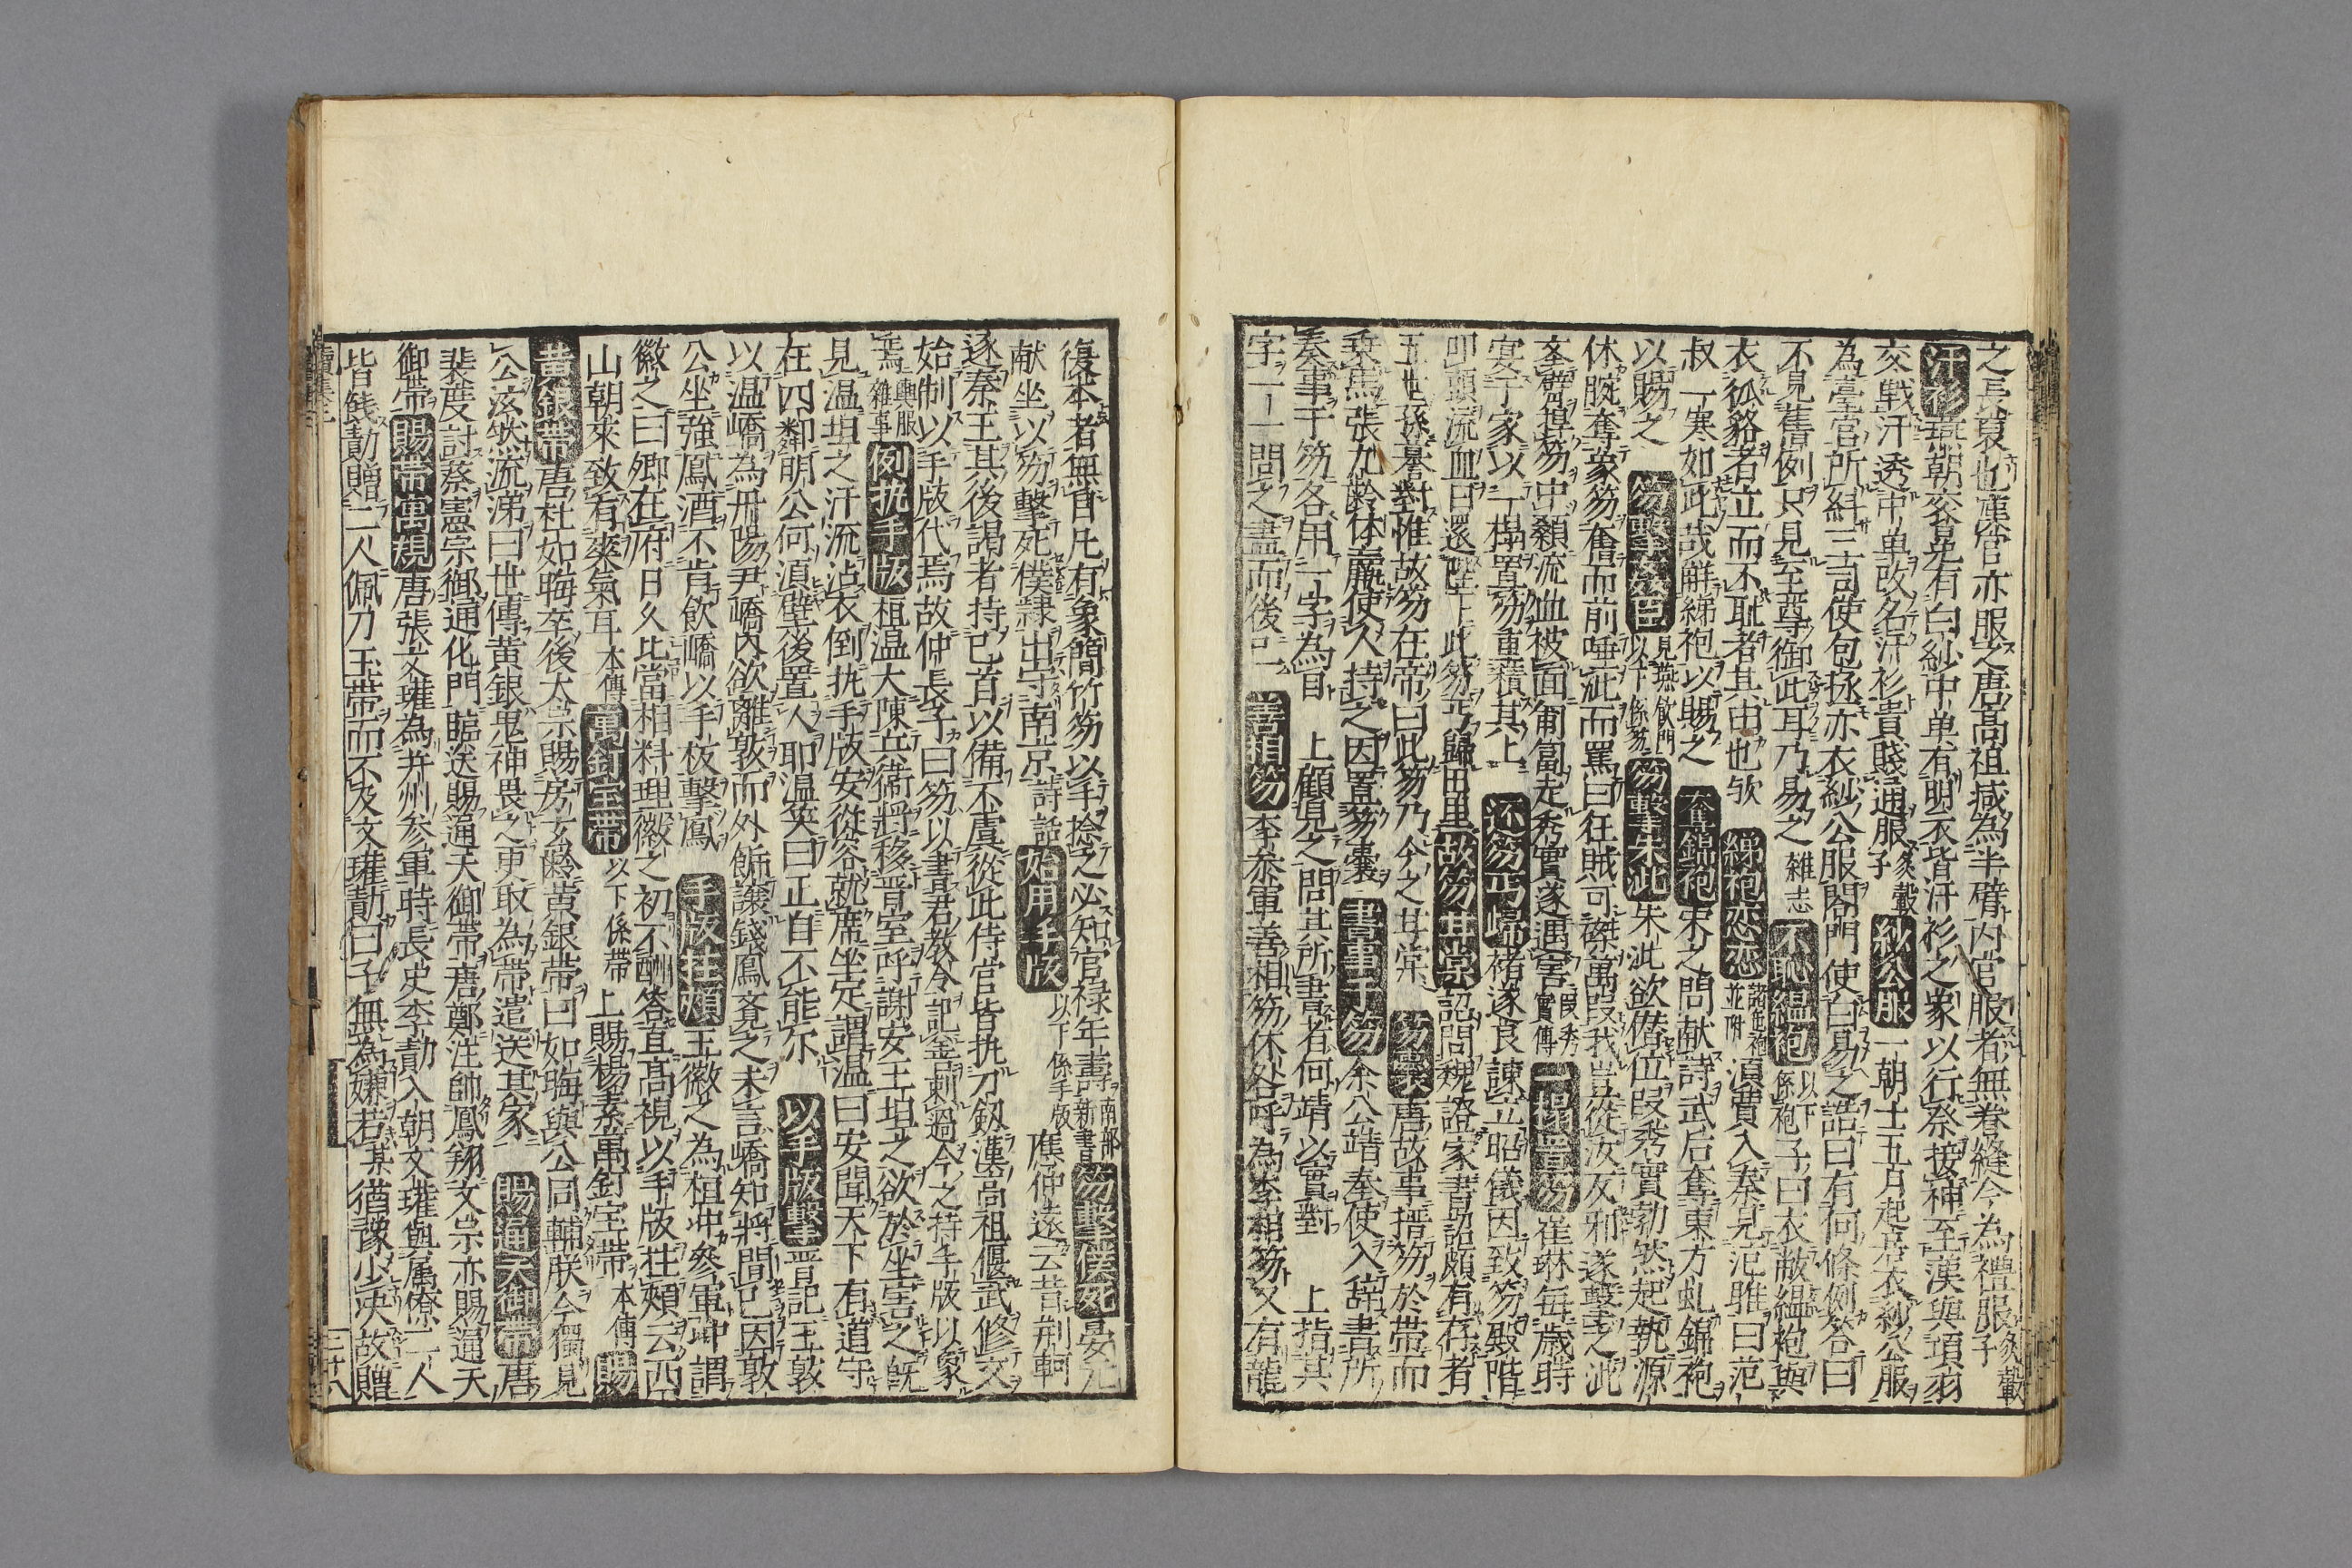 之長裏也漢官亦服之唐高祖减為半臂内官服者無卷縫今為禮服炙轂子
汗衫燕朝衮冕有白紗中単有明衣皆汗衫之象以行祭接神至漢與項羽
交戦汗透中単改名汗衫貴賤通服炙轂子紗公服一朝士五月起居衣紗公服
為臺官所糾三司使包拯亦衣紗公服閤門使白易之詰曰有何條例答曰
不見舊例只見至尊御此耳乃易之雜志不恥緼袍以下係袍子曰衣敝緼袍與
衣狐貉者立而不耻者其由也欤綈袍恋恋諸色袍並附湏賈入秦見范雎曰范
叔一寒如此哉觧綈袍以賜之奪錦袍宋之問献詩武后奪東方虬錦袍
以賜之笏擊姦臣見燕飲門以下係笏笏擊朱泚朱泚欲僭位段秀實勃然起執源
休腕奪象笏奮而前唾泚而罵曰狂賊可磔萬段我豈從汝反邪遂擊之泚
挙臂捍笏中顙流血被面匍匐走秀實遂遇害段秀實傳一榻置笏崔琳毎歳時
宴于家以一榻置笏重積其上还笏丐歸褚遂良諫立昭儀因致笏殿階
叩頭流血曰還陛下此笏丐歸田里故笏甘棠詔問魏謩家書詔頗有存者
五世孫謩對惟故笏在帝曰此笏乃今之甘棠笏囊唐故事搢笏於帯而
乗馬張九齢体羸使人持之因置笏囊書事于笏余公靖奉使入辞書所
奏事于笏各用一字為目上顧見之問其所書者何靖以實對上指其
字一一問之盡而後已善相笏李参軍善相笏休咎呼為李相笏又有龍
復本者無目凡有象簡竹笏以手捻之必知官禄年壽南部新書笏擊僕死晏元
献坐以笏擊死僕隷出守南京詩話始用手版以下係手版應仲遠云昔荆軻
逐秦王其後謁者持匕首以備不虞從此侍官皆执刀劔漢高祖偃武修文
始制以手版代焉故仲長子曰笏以書君教令記善刺過今之持手版以象
笏焉輿服雜事例执手版桓温大陳兵衛将移晋室呼謝安王坦之欲於坐害之既
見温坦之汗流沾衣倒执手版安從容就席坐定謂温曰安聞天下有道守
在四鄰明公何湏壁後置人耶温笑曰正自不能尓以手版擊晋記王敦
以温嶠為丹陽尹嶠内欲離敦而外飾譲錢鳳斉之未言嶠知将間已因敦
公坐強鳳酒不肯飲嶠以手板擊鳳手版拄頬王徽之為桓冲参軍冲謂
徽之曰卿在府日久比當相料理徽之初不酬答直髙視以手版拄頬云西
山朝來致有爽氣耳本傳萬釘宝带以下係帯上賜楊素萬釘宝带本傳賜
黄銀带唐杜如晦卒後太宗賜房玄齢黄銀带曰如晦與公同輔朕今獨見
公泫然流涕曰世傳黄銀鬼神畏之更取為带遣送其家賜通天御带唐
裴度討蔡憲宗御通化門臨送賜通天御带唐鄭注帥鳳翔文宗亦賜通天
御带賜带萬規唐張文瓘為并州参軍時長史李勣入朝文瓘與属僚二人
皆餞勣贈二人佩刀玉带而不及文瓘勣曰子無為嫌若某猶豫少决故贈